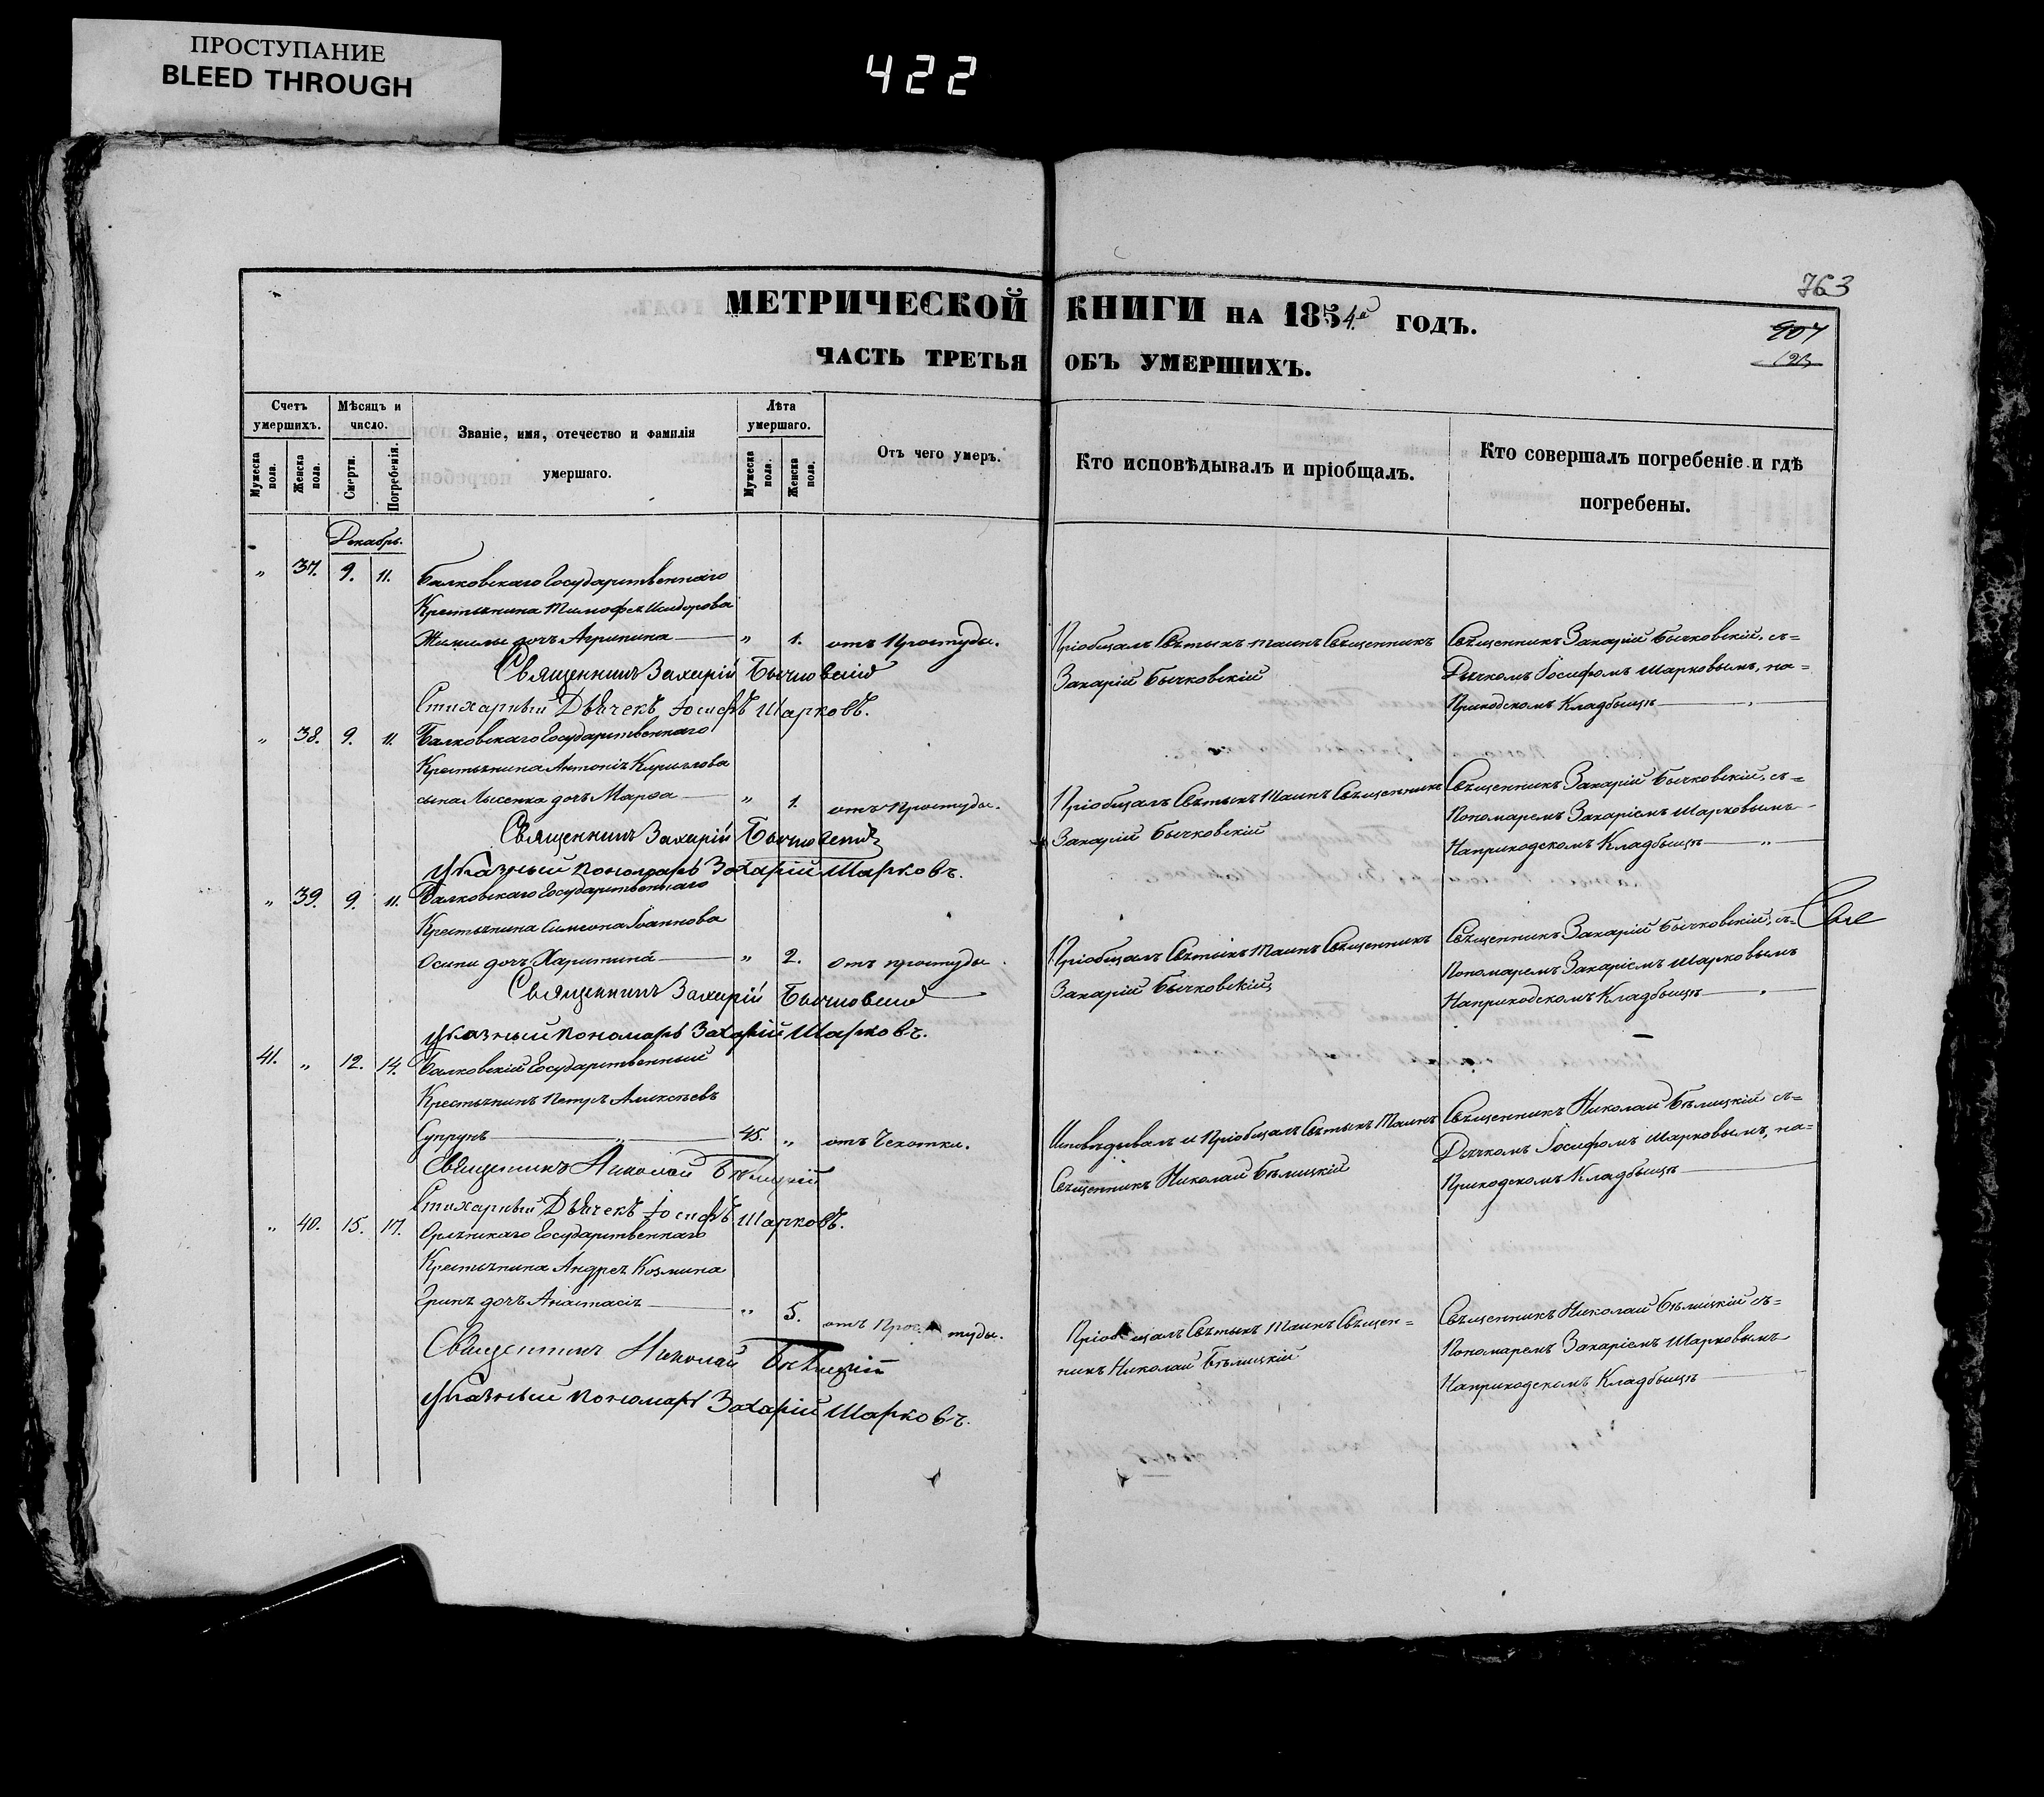 ПРОСТУПАНИЕ
BLEED THROUGH
422
763
МЕТРИЧЕСКОЙ КНИГИ НА 1854.е ГОДЪ.
907
ЧАСТЬ ТРЕТЬЯ ОБЪ УМЕРШИХЪ.
Счетъ умершихъ.
Мѣсяцъ и число.
Званіе, имя, отечество и фамилія умершаго.
Лѣта умершаго.
Отъ чего умеръ.
Кто исповѣдывалъ и пріобщалъ.
Кто совершалъ погребеніе и гдѣ погребены.
Мужеска пола.
Женска пола.
Смерти.
Погребенія.
Мужеска пола.
Женска пола.
Декабрь.
„ 37. 9. 11. Балковскаго Государственнаго
Крестьянина Тимофея Исидорова
дочь Агрипина „ 1. отъ Простуды. Пріобщалъ Святыхъ Таинъ Священникъ Священникъ Захарій Бычковскій, съ=
Священникъ Захарій Бычковскій Захарій Бычковскій Дьячкомъ Іосифомъ Шарковымъ, на=
Стихарный Дьячекъ Іосифъ Шарковъ. Приходскомъ Кладбищѣ
„ 38. 9. 11. Балковскаго Государственнаго
Крестьянина Антонія Кирилова
сына Лысенка дочь Марѳа „ 1. отъ Простуды. Пріобщалъ Святыхъ Таинъ Священникъ Священникъ Захарій Бычковскій, съ=
Священникъ Захарій Бычковскій Захарій Бычковскій Пономаремъ Захаріемъ Шарковымъ
Указный Пономарь Захарій Шарковъ. На приходскомъ Кладбищѣ „
„ 39. 9. 11. Балковскаго Государственнаго
Крестьянина Симеона Іоаннова
Осипи дочь Харитина „ 2. отъ простуды. Пріобщалъ Святыхъ Таинъ Священникъ Священникъ Захарій Бычковскій, съ=
Священникъ Захарій Бычковскій Захарій Бычковскій Пономаремъ Захаріемъ Шарковымъ
Указный Пономарь Захарій Шарковъ. На приходскомъ Кладбищѣ
41. „ 12. 14. Балковскій Государственный
Крестьянинъ Петръ Алексѣевъ
Супрунъ 45. „ отъ Чехотки. Исповѣдывалъ и Пріобщалъ Святыхъ Таинъ Священникъ Николай Бѣлицкій съ=
Священникъ Николай Бѣлицкій Священникъ Николай Бѣлицкій Дьячкомъ Іосифомъ Шарковымъ, на=
Стихарный Дьячекъ Іосифъ Шарковъ. Приходскомъ Кладбищѣ
„ 40. 15. 17. Государственнаго
Крестьянина Андрея Козмина
дочь Анастасія „ 5. отъ Простуды. Пріобщалъ Святыхъ Таинъ Священ= Священникъ Николай Бѣлицкій съ=
Священникъ Николай Бѣлицкій никъ Николай Бѣлицкій Пономаремъ Захаріемъ Шарковымъ
Указный Пономарь Захарій Шарковъ. На приходскомъ Кладбищѣ